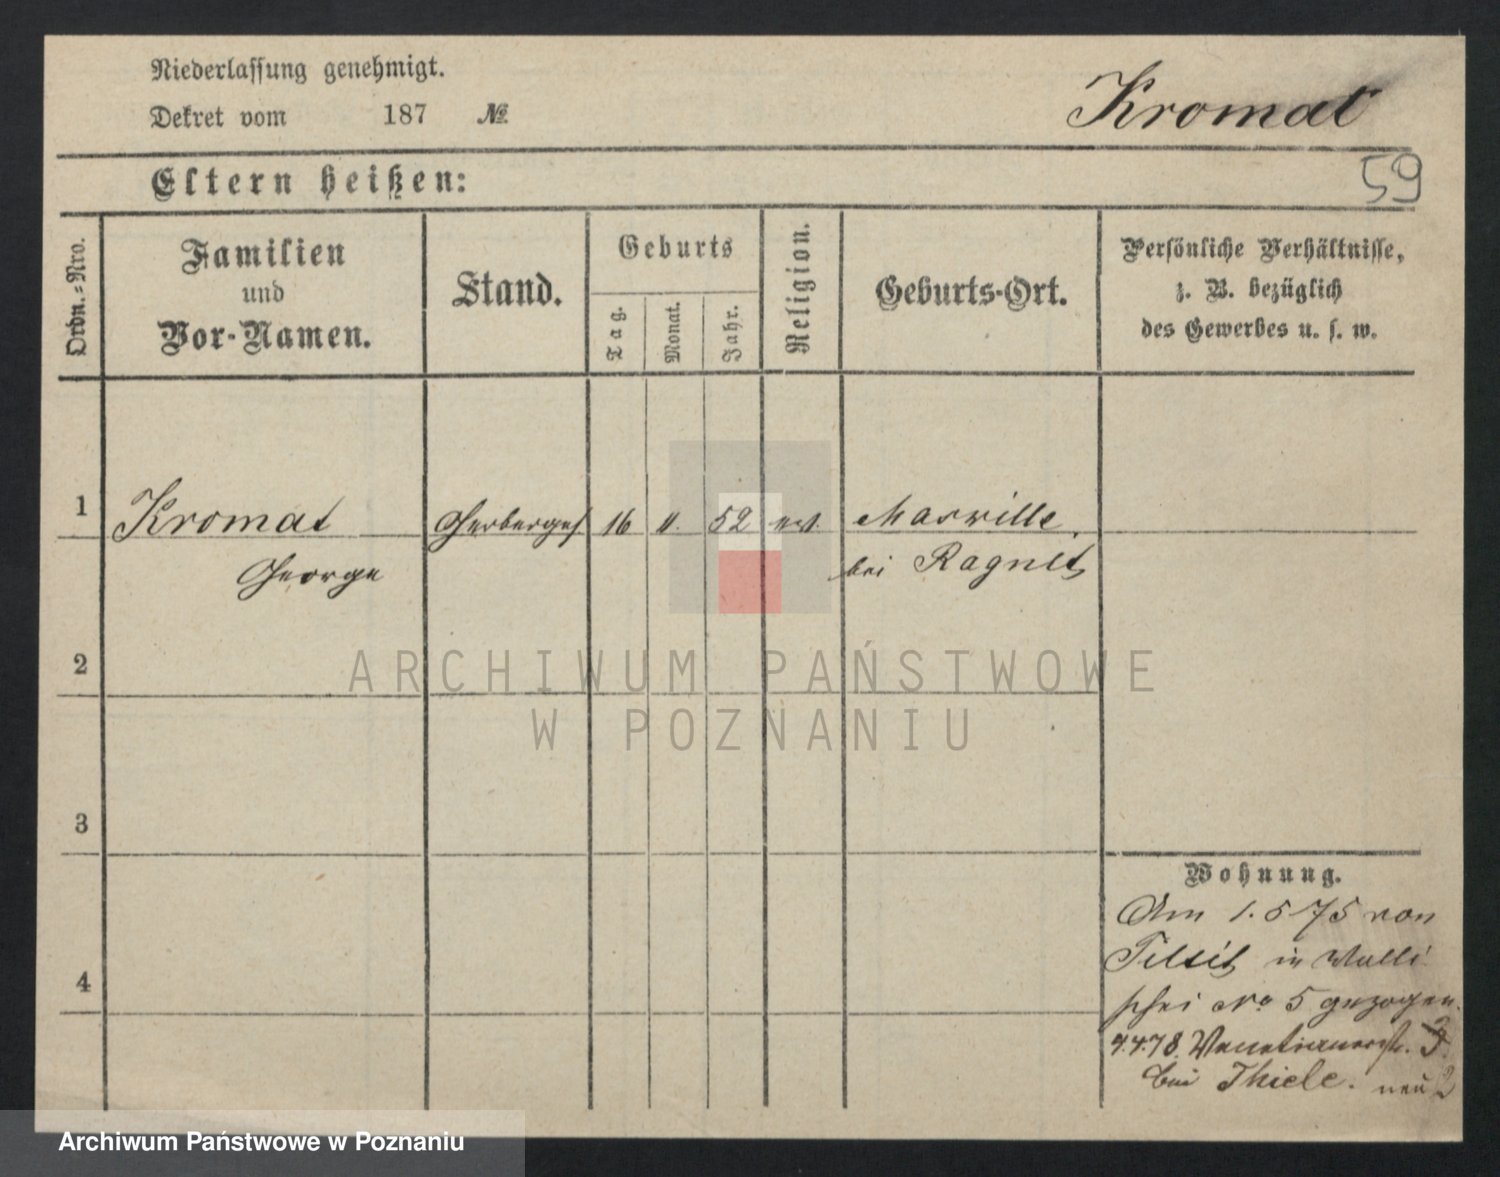 Niederlassung genehmigt.
Dekret vom 187 №
Kromat
59
Eltern heißen:
Ordn.-Nro.
Familien
und
Vor-Namen.
Stand.
Geburts
Tag.
Monat.
Jahr.
Religion.
Geburts-Ort.
Persönliche Verhältnisse,
z. B. bezüglich
des Gewerbes u. s. w.
1 Kromat 16 11. 52 ev.
George bei Ragnit
2
3
4
Wohnung.
Am 1.5 75 von
Tilsit in Walli
schei No 5 gezogen.
4.78. Venetianerstr. 3.
bei Thiele. neu 2
ARCHIWUM PAŃSTWOWE
W POZNANIU
Archiwum Państwowe w Poznaniu